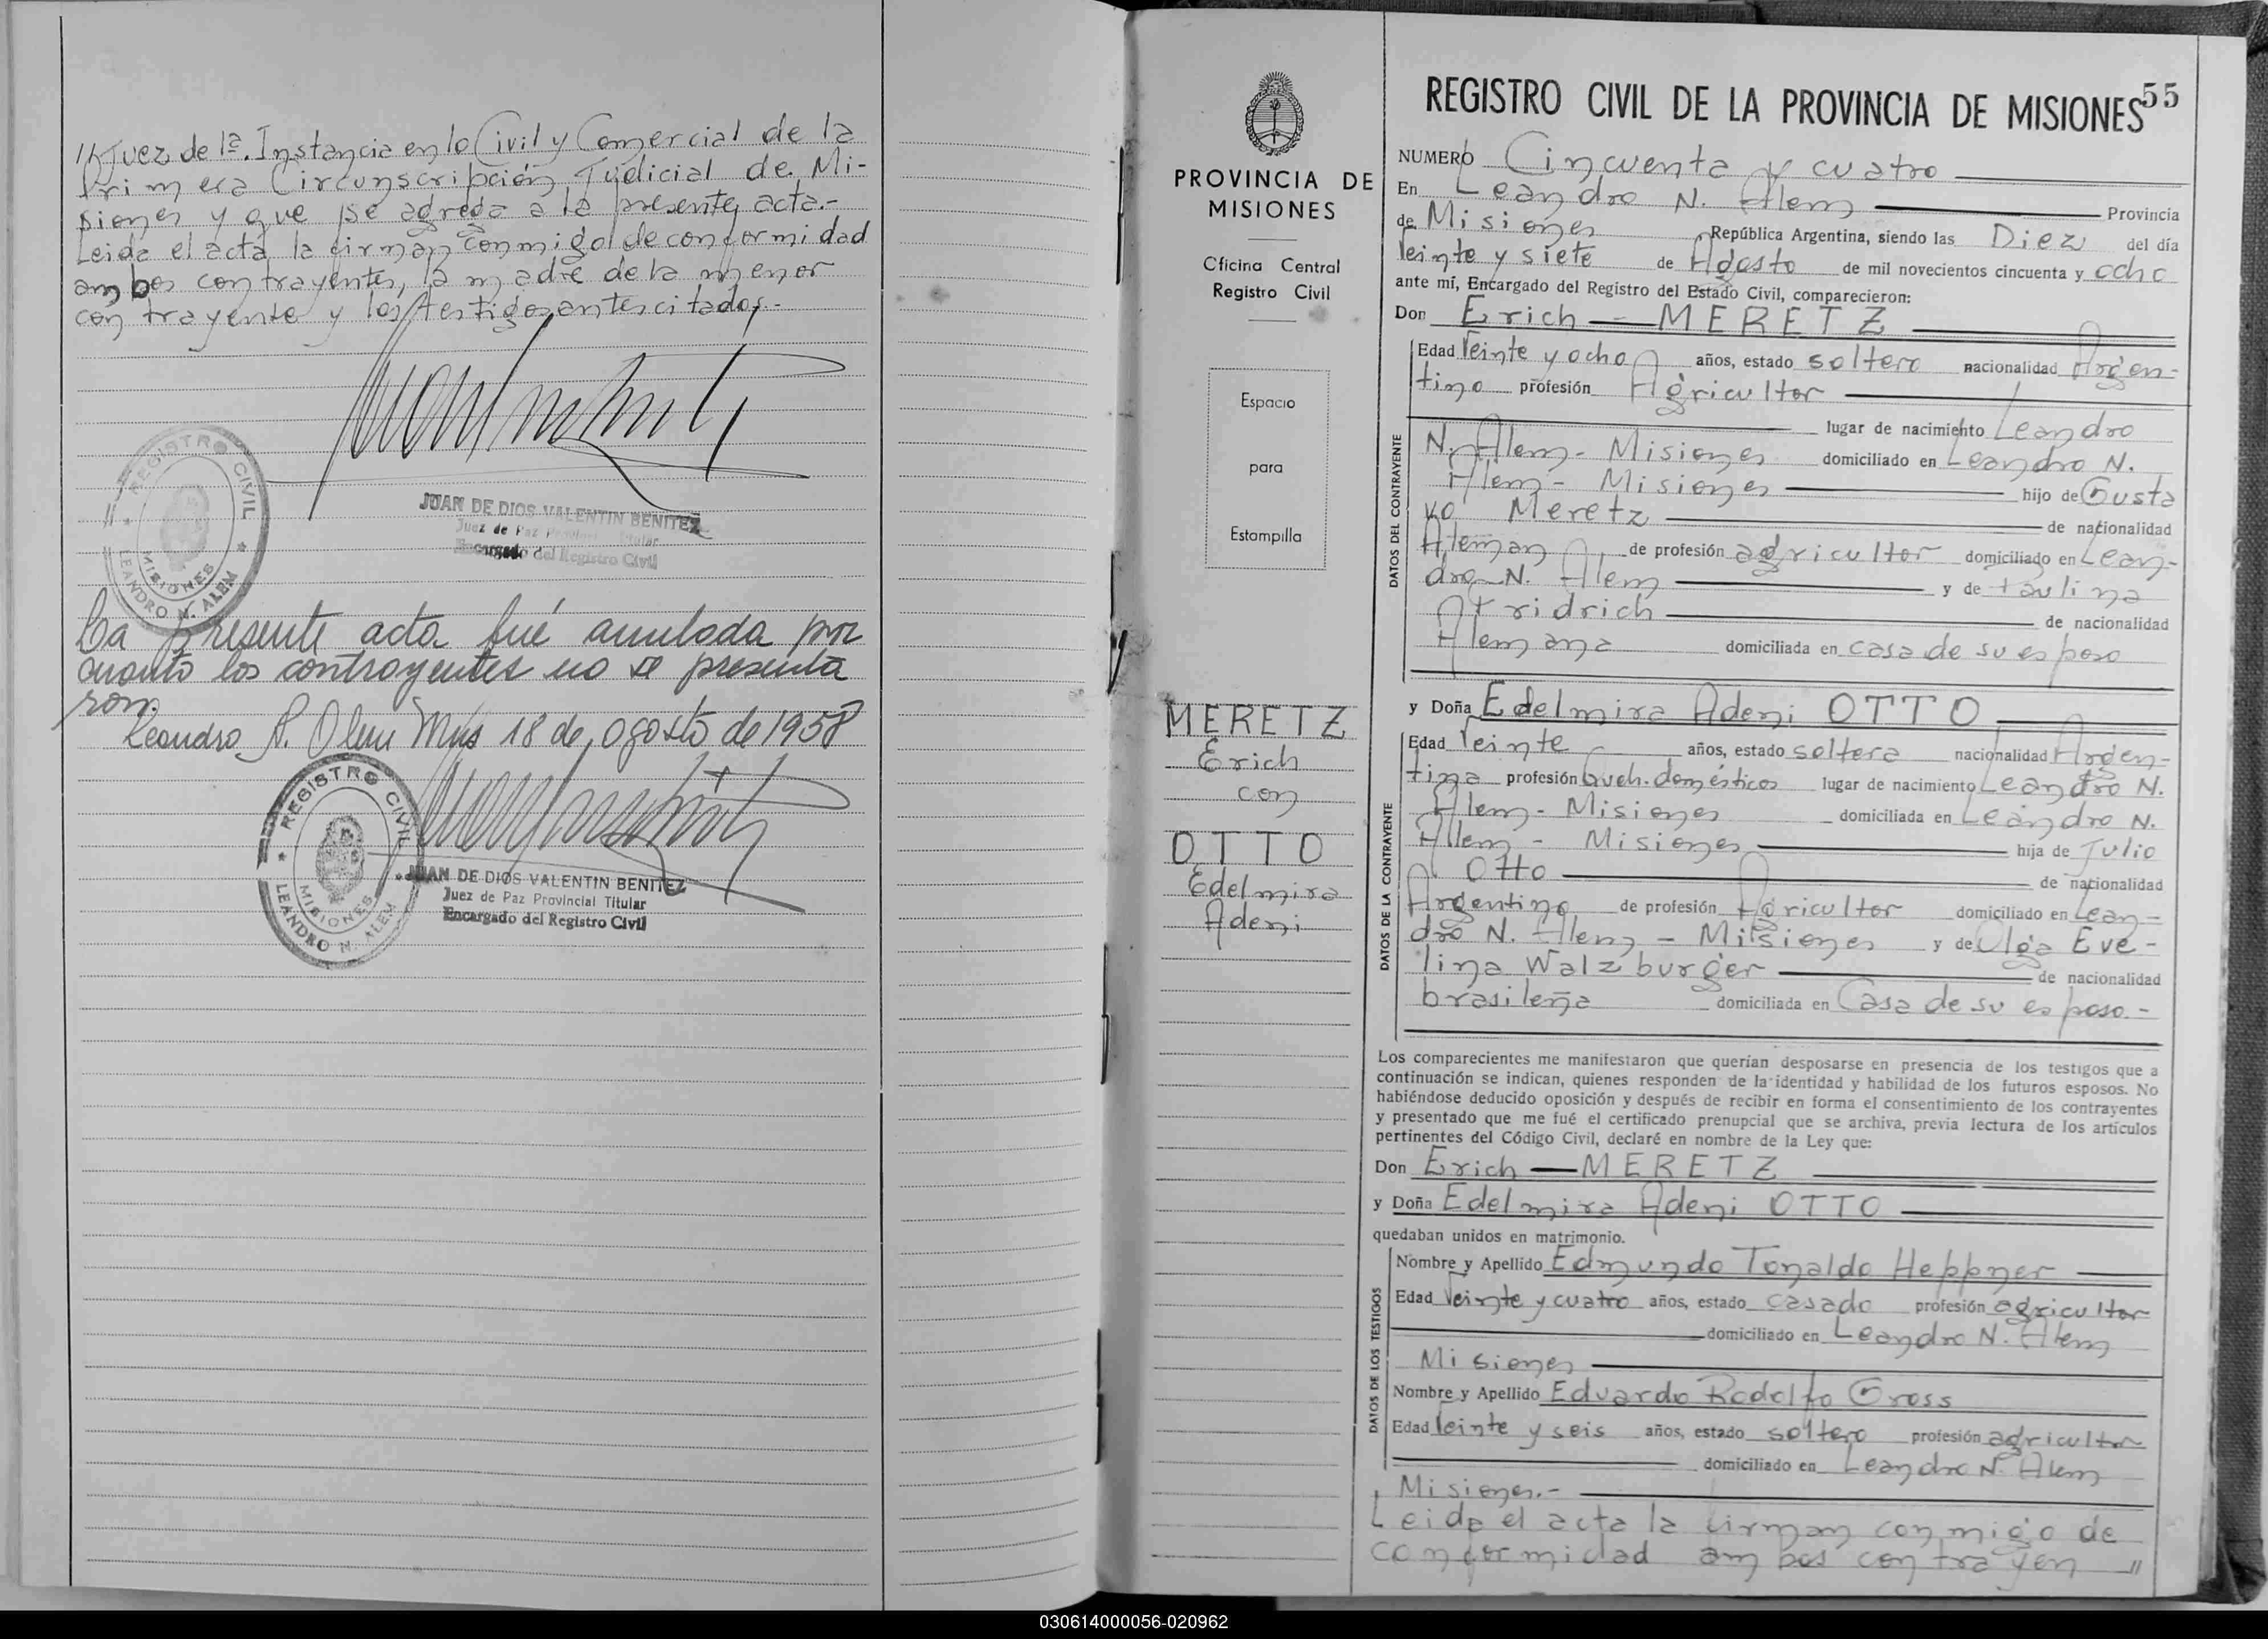 // Juez de 1ª. Instancia en lo Civil y Comercial de la
Primera Circunscripción Judicial de Mi-
siones y que se agrega a la presente acta.-
Leida el acta la firman conmigo de conformidad
ambos contrayentes, la madre de la menor
contrayente y los testigos antes citados.-
REGISTRO CIVIL
MISIONES
LEANDRO N. ALEM
JUAN DE DIOS VALENTIN BENITEZ
Juez de Paz Provincial Titular
Encargado del Registro Civil
La presente acta fué anulada por
cuanto los contrayentes no se presenta
ron.
Leandro N. Alem Mnes 18 de agosto de 1958
REGISTRO CIVIL
MISIONES
LEANDRO N. ALEM
JUAN DE DIOS VALENTIN BENITEZ
Juez de Paz Provincial Titular
Encargado del Registro Civil
PROVINCIA DE
MISIONES
Oficina Central
Registro Civil
Espacio
para
Estampilla
MERETZ
Erich
con
OTTO
Edelmira
Adeni
REGISTRO CIVIL DE LA PROVINCIA DE MISIONES 55
NUMERO Cincuenta y cuatro
En Leandro N. Alem Provincia
de Misiones República Argentina, siendo las Diez del día
Veinte y siete de Agosto de mil novecientos cincuenta y ocho
ante mí, Encargado del Registro del Estado Civil, comparecieron:
Don Erich — MERETZ
DATOS DEL CONTRAYENTE
Edad Veinte y ocho años, estado soltero nacionalidad Argen-
tino profesión Agricultor
lugar de nacimiento Leandro
N. Alem - Misiones domiciliado en Leandro N.
Alem - Misiones hijo de Gusta
vo Meretz de nacionalidad
Aleman de profesión agricultor domiciliado en Lean-
dro N. Alem y de Paulina
de nacionalidad
Alemana domiciliada en casa de su esposo
y Doña Edelmira Adeni OTTO
DATOS DE LA CONTRAYENTE
Edad Veinte años, estado soltera nacionalidad Argen-
tina profesión Queh. domésticos lugar de nacimiento Leandro N.
Alem - Misiones domiciliada en Leandro N.
Alem - Misiones hija de Julio
Otto de nacionalidad
Argentino de profesión Agricultor domiciliado en Lean-
dro N. Alem - Misiones y de Olga Eve-
lina Walzburger de nacionalidad
brasileña domiciliada en Casa de su esposo.-
Los comparecientes me manifestaron que querían desposarse en presencia de los testigos que a
continuación se indican, quienes responden de la identidad y habilidad de los futuros esposos. No
habiéndose deducido oposición y después de recibir en forma el consentimiento de los contrayentes
y presentado que me fué el certificado prenupcial que se archiva, previa lectura de los artículos
pertinentes del Código Civil, declaré en nombre de la Ley que:
Don Erich — MERETZ
y Doña Edelmira Adeni OTTO
quedaban unidos en matrimonio.
DATOS DE LOS TESTIGOS
Nombre y Apellido Edmundo Tonaldo Heppner
Edad Veinte y cuatro años, estado casado profesión agricultor
domiciliado en Leandro N. Alem
Misiones
Nombre y Apellido Eduardo Rodolfo Gross
Edad Veinte y seis años, estado soltero profesión agricultor
domiciliado en Leandro N. Alem
Misiones.-
Leida el acta la firman conmigo de
conformidad ambos contrayen //
030614000056-020962